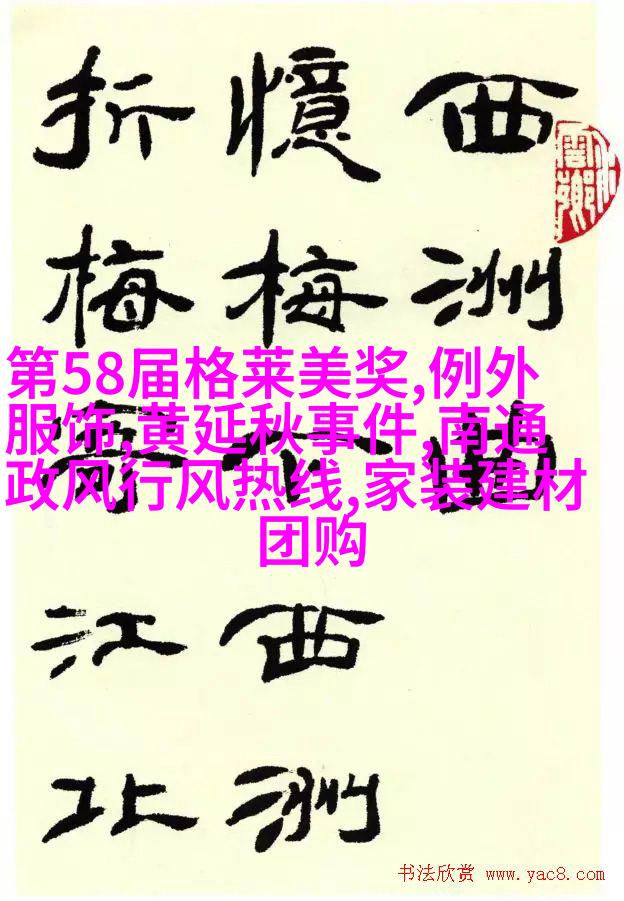 西洲曲
憶梅下西洲
折梅寄江北
第58届格莱美奖,例外
服饰,黄延秋事件,南通
政风行风热线,家装建材
团购
书法欣赏 www.yac8.com